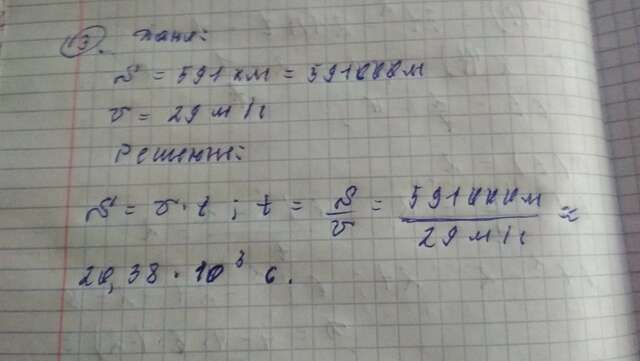 13. Дано:
S = 591 км = 591000 м
v = 29 м/с
Решение:
S = v · t ; t = S/v = 591000 м / 29 м/с ≈
20,38 · 10³ с.